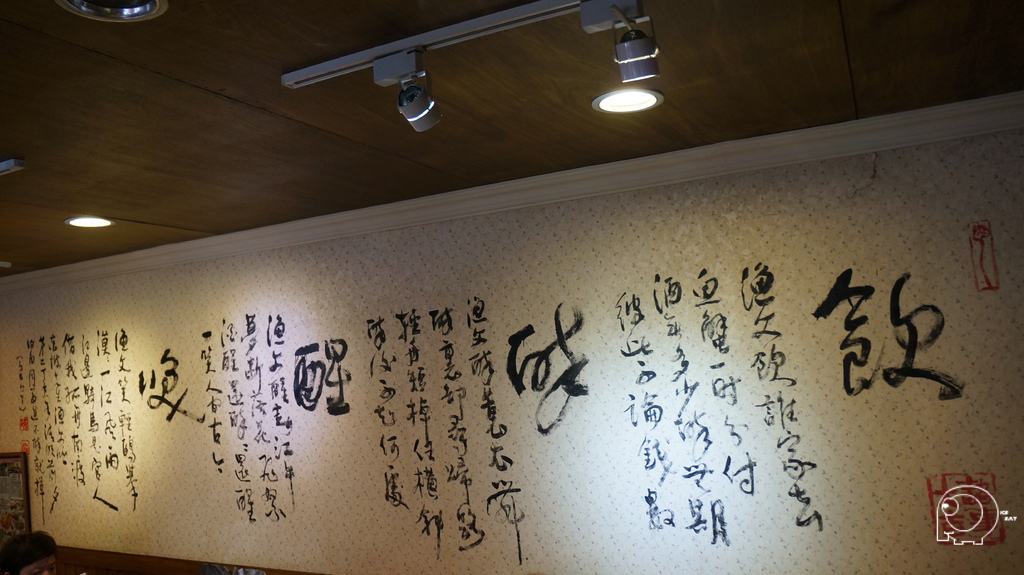 飲
漁父飲誰家去
魚蟹一時分付
酒無多少醉為期
彼此不論錢數
醉
漁父醉蓑衣舞
醉裏却尋歸路
輕舟短棹任橫斜
醉後不知何處
醒
漁父醒春江午
夢斷落花飛絮
酒醒還醉醉還醒
一笑人間今古
笑
漁父笑輕鷗舉
漠漠一江風雨
江邊騎馬是官人
借我孤舟南渡